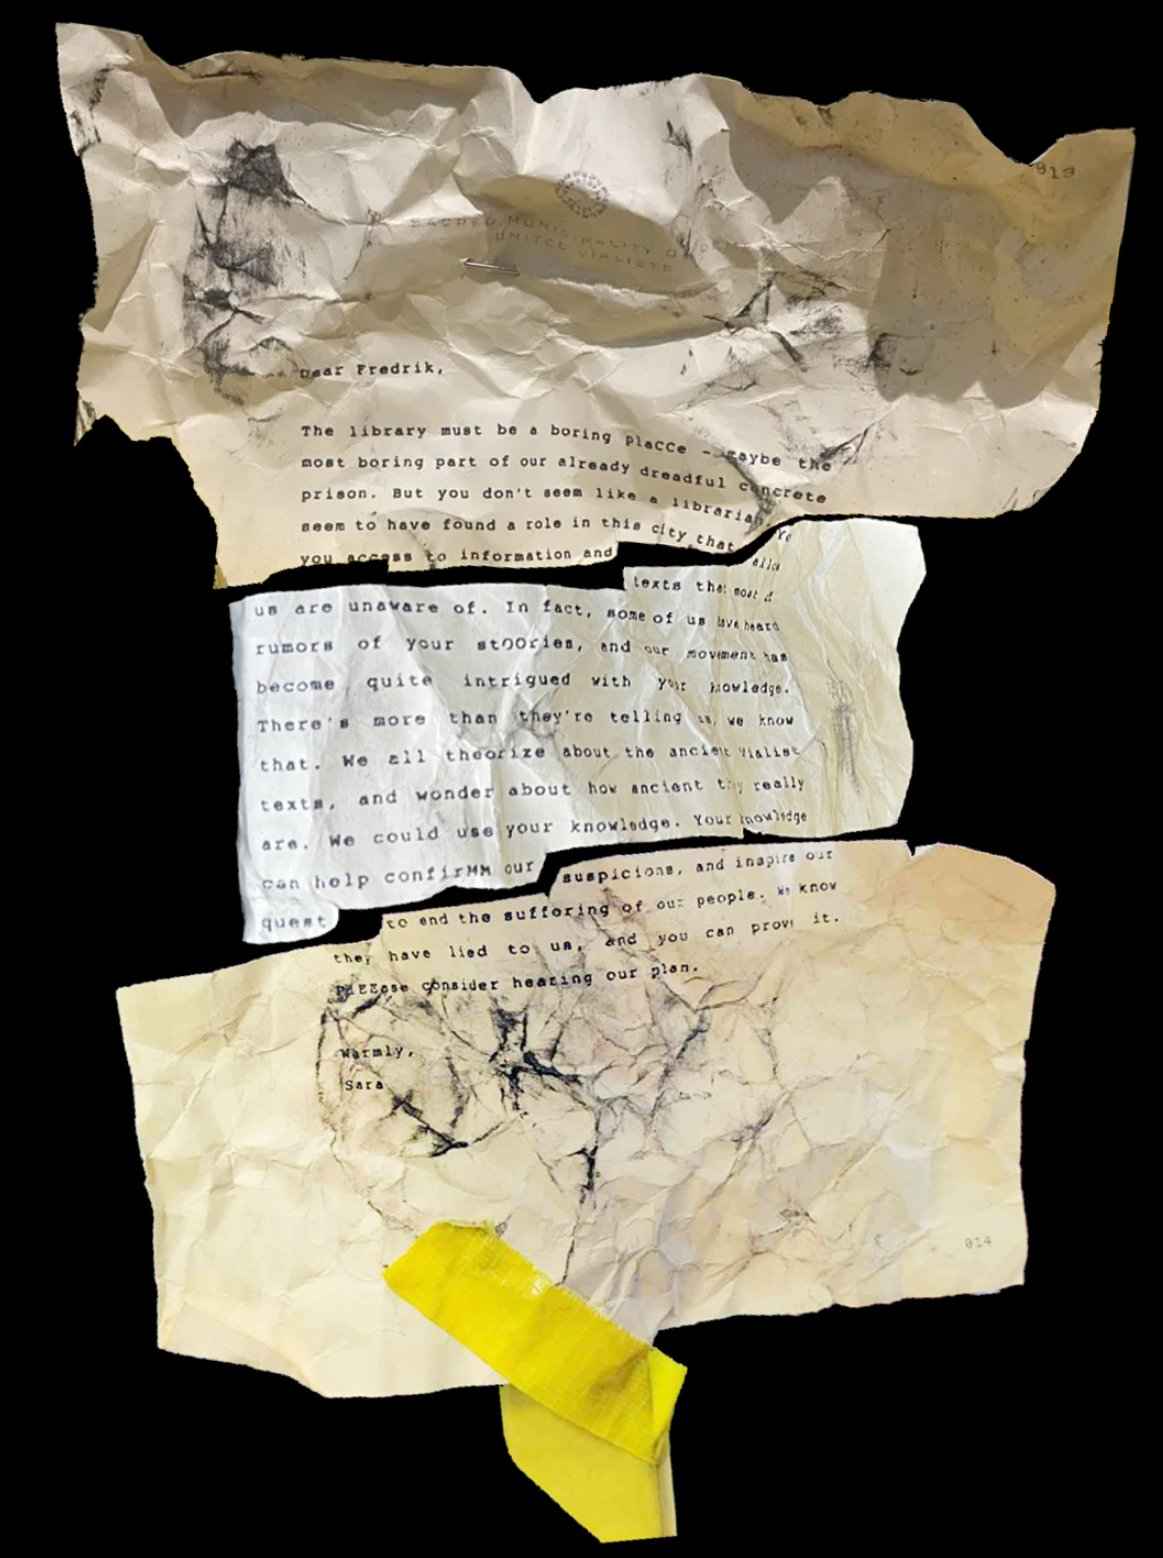 013
SACRED MUNICIPALITY OF
UNITED VIALISTS
Dear Fredrik,
The library must be a boring plaCCe - maybe the
most boring part of our already dreadful concrete
prison. But you don't seem like a librarian. You
seem to have found a role in this city that allows
you access to information and texts that most of
us are unaware of. In fact, some of us have heard
rumors of your stOOries, and our movement has
become quite intrigued with your knowledge.
There's more than they're telling us, we know
that. We all theorize about the ancient Vialist
texts, and wonder about how ancient they really
are. We could use your knowledge. Your knowledge
can help confirMM our suspicions, and inspire our
quest to end the suffering of our people. We know
they have lied to us, and you can prove it.
consider hearing our plan.
Warmly,
Sara
014